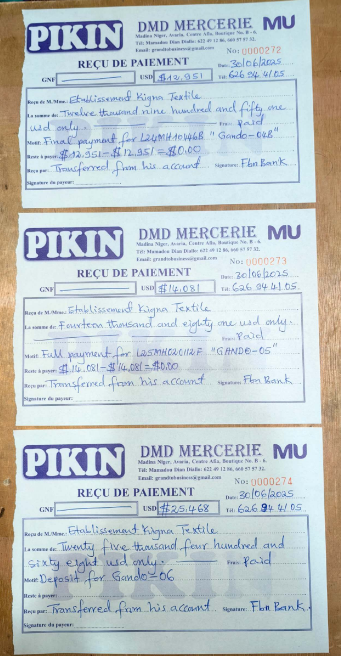 PIKIN
DMD MERCERIE MU
Madina Niger, Avaria, Centre Alfa, Boutique No - B - 6.
Tél: Mamadou Dian Diallo: 622 49 12 86, 660 57 97 32.
Email: grandtobusiness@gmail.com
No: 0000272
REÇU DE PAIEMENT
Date: 30/06/2025
GNF USD $12,951 Tél: 626 94 41 05
Reçu de M./Mme: Etablissement Kigna Textile
La somme de: Twelve thousand nine hundred and fifty one
usd only. Frais: Paid
Motif: Final payment for "Gando-04B"
Reste à payer: $12,951-$12,951=$0.00
Reçu par: Transferred from his account Signature: Fbn Bank
Signature du payeur:
PIKIN
DMD MERCERIE MU
Madina Niger, Avaria, Centre Alfa, Boutique No - B - 6.
Tél: Mamadou Dian Diallo: 622 49 12 86, 660 57 97 32.
Email: grandtobusiness@gmail.com
No: 0000273
REÇU DE PAIEMENT
Date: 30/06/2025
GNF USD $14,081 Tél: 626 94 41 05
Reçu de M./Mme: Etablissement Kigna Textile
La somme de: Fourteen thousand and eighty one usd only.
Frais: Paid
Motif: Full payment for "GANDO-05"
Reste à payer: $14,081-$14,081=$0.00
Reçu par: Transferred from his account Signature: Fbn Bank
Signature du payeur:
PIKIN
DMD MERCERIE MU
Madina Niger, Avaria, Centre Alfa, Boutique No - B - 6.
Tél: Mamadou Dian Diallo: 622 49 12 86, 660 57 97 32.
Email: grandtobusiness@gmail.com
No: 0000274
REÇU DE PAIEMENT
Date: 30/06/2025
GNF USD $25,468 Tél: 626 94 41 05
Reçu de M./Mme: Etablissement Kigna Textile
La somme de: Twenty five thousand four hundred and
sixty eight usd only. Frais: Paid
Motif: Deposit for Gando-06
Reste à payer:
Reçu par: Transferred from his account Signature: Fbn Bank.
Signature du payeur: